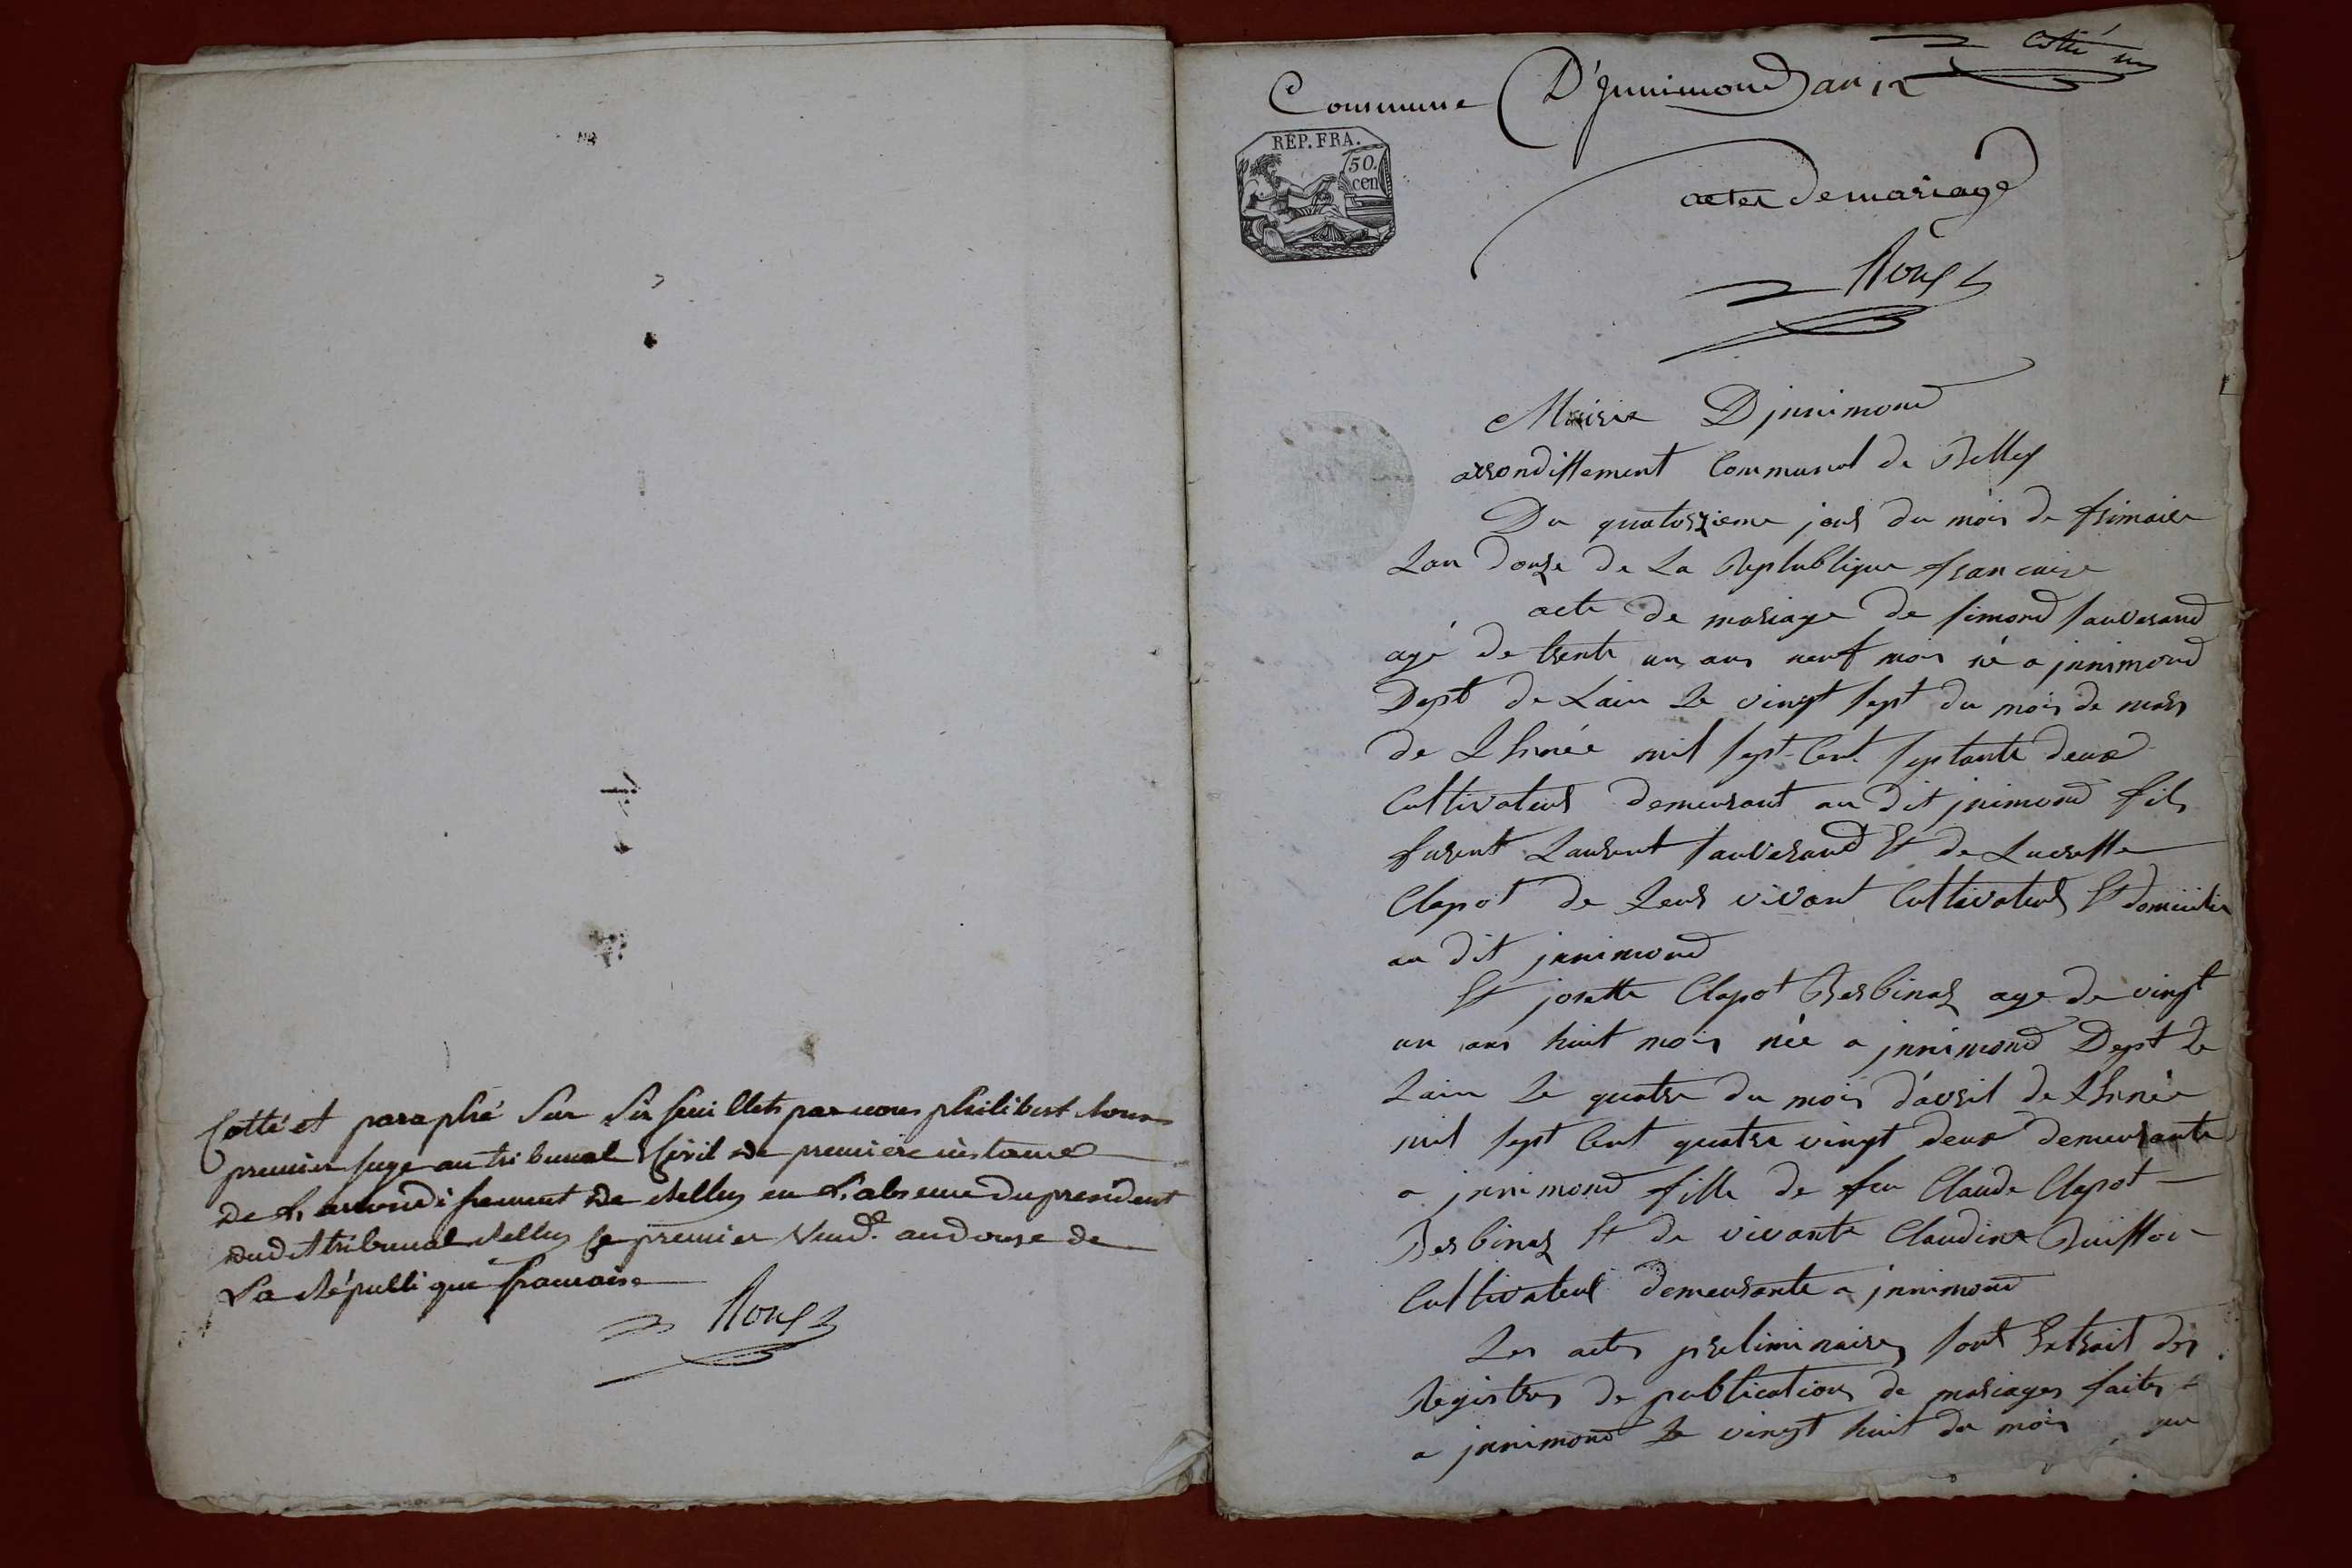 Cotté et paraphé sur six feuillets par nous philibert Roux
premier juge au tribunal Civil de premiere instance
de L'arrondissement de Belley en L'absence du president
dudit tribunal Belley le premier Vend.e an douze de
La République francaise
Roux
Cotté un
Commune D'Jnnimond an 12
REP. FRA.
50.
cen
actes de mariage
Roux
Mairie D jnnimond
arondissement Communal de Belley
Du quatorzieme jour du mois de frimaire
Lan douze de La Replublique francaise
acte de mariage de simond sauverand
agé de trente un ans neuf mois né a jnnimond
Dept de Lain Le vingt sept du mois de mars
de L'hnée mil sept Cent septante deux
Cultivateur demeurant au dit jnimond fils
furent Laurent sauverand Et de Lucresse
Clapot de Leur vivant Cultivateur Et domicilie
au dit jnnimond
Et josette Clapot Berbinaz age de vingt
un ans huit mois née a jnnimond Dept de
Lain Le quatre du mois d'avril de L'hnée
mil sept Cent quatre vingt deux demeurante
a jnnimond fille de feu Claude Clapot
Berbinaz Et de vivante Claudine
Cultivateur demeurante a jnnimond
Les actes preliminaires sont Extrait des
Registres de publications de mariages faites
a jnnimond Le vingt huit du mois